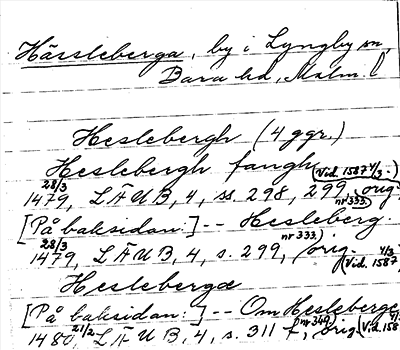 Hässleberga, by i Lyngby sn,
Bara hd, Malm. l
Heslebergh (4 ggr.)
Heslebergh fangh (Vid. 1587 4/3.)
28/3 1479, LÄUB, 4, ss. 298, 299, orig. nr 333)
[På baksidan:] -- Hesleberg.
28/3 1479, LÄUB, 4, s. 299, nr 333) orig. (Vid. 1587 4/3
Hesleberga
[På baksidan:] -- Om Hesleberge
21/2 1480, LÄUB, 4, s. 311 f, nr 349) orig. (Vid. 158